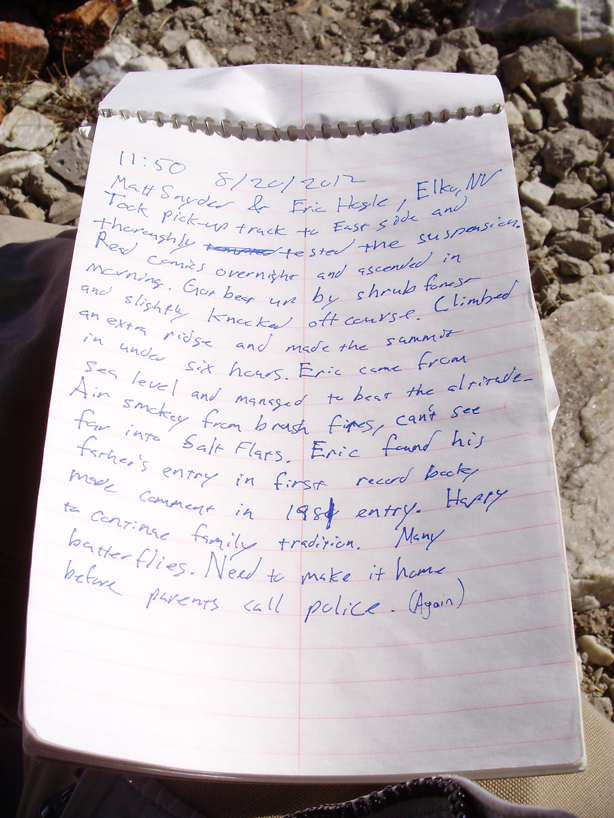 11:50 8/20/2012
Matt Snyder & Eric Hegle, Elko, NV
Took pick-up track to East side and
thoroughly tested the suspension.
Read comics overnight and ascended in
morning. Got beat up by shrub forest
and slightly knocked off course. Climbed
an extra ridge and made the summit
in under six hours. Eric came from
sea level and managed to beat the altitude.
Air smokey from brush fires, can't see
far into Salt Flats. Eric found his
father's entry in first record book,
made comment in 1984 entry. Happy
to continue family tradition. Many
butterflies. Need to make it home
before parents call police. (Again)